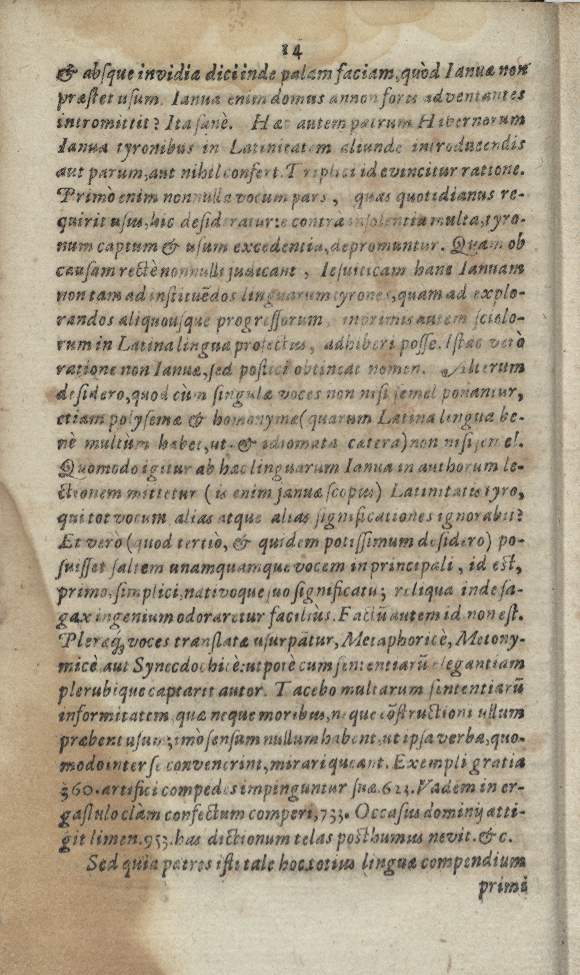 14
& absque invidia dici inde palam faciam, quòd Ianuæ non
præstet usum. Ianua enim domus annon foris adventantes
intromittit? Ita sanè. Hæc autem patrum Hibernorum
Ianua tyronibus in Latinitatem aliunde introducendis
aut parum, aut nihil confert. Triplici id evincitur ratione.
Primò enim nonnulla vocum pars, quas quotidianus re-
quirit usus, hic desideratur: e contra insolentia multa, tyro-
num captum & usum excedentia, depromuntur. Quam ob
causam rectè nonnulli judicant, Iesuiticam hanc Ianuam
non tam ad instituēdos linguarum tyrones, quam ad explo-
randos aliquousque progressorum, inprimis autem sciolo-
rum in Latina lingua profectus, adhiberi posse. Istac verò
ratione non Ianuæ, sed postici obtineat nomen. Alterum
desidero, quod cùm singulæ voces non nisi semel ponantur,
etiam polysemæ & homonymæ (quarum Latina lingua be-
nè multùm habet, ut & idiomata cætera) non nisi semel.
Quomodo igitur ab hac linguarum Ianua in authorum le-
ctionem mittetur (is enim januæ scopus) Latinitatis tyro,
qui tot vocum alias atque alias significationes ignorabit?
Et verò (quod tertiò, & quidem potissimum desidero) po-
suisset saltem unamquamque vocem in principali, id est,
primo, simplici, nativoque suo significatu; reliqua inde sa-
gax ingenium odoraretur facilius. Factū autem id non est.
Pleræq; voces translatæ usurpātur, Metaphoricè, Metony-
micè aut Synecdochicè: utpotè cum sententiarū elegantiam
plerubique captarit autor. Tacebo multarum sententiarū
informitatem, quæ neque moribus, neque cōstructioni ullum
præbent usum; imò sensum nullum habent, ut ipsa verba, quo-
modo inter se convenerint, mirari queant. Exempli gratia
360. artifici compedes impinguntur suæ. 623. Vadem in er-
gastulo clàm confectum comperi, 733. Occasus dominy atti-
git limen. 953. has dictionum telas posthumus nevit. & c.
Sed quia patres isti tale hoc totius linguæ compendium
primi